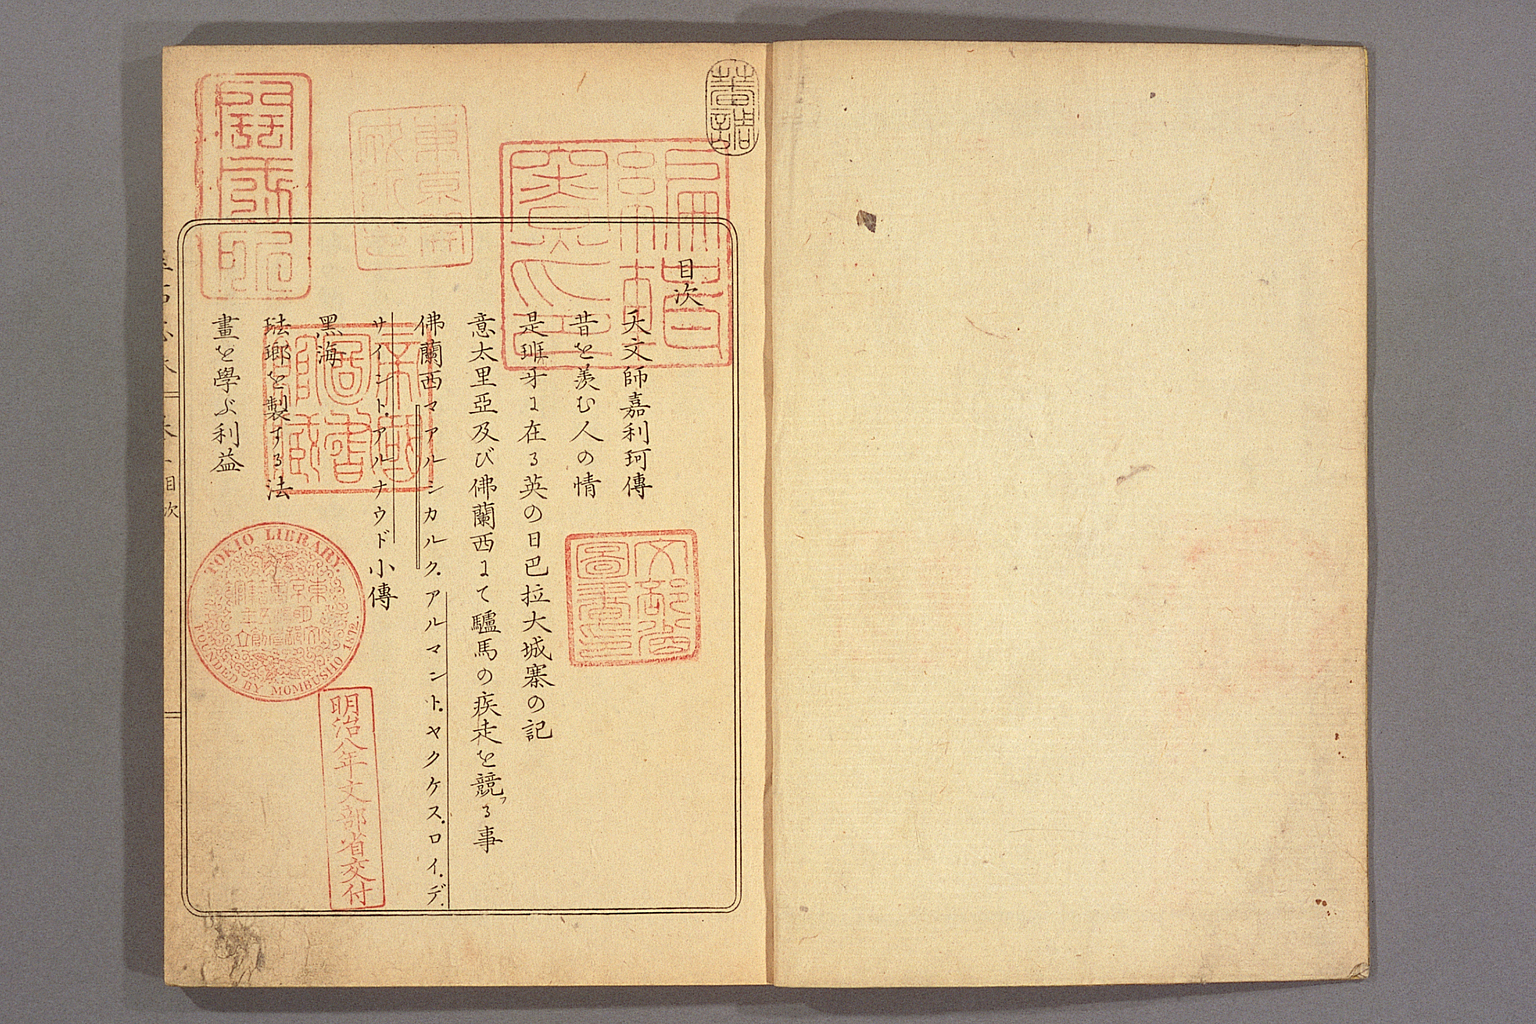 目次
天文師嘉利珂傳
昔を羨む人の情
是班牙に在る英の日巴拉大城寨の記
意太里亞及び佛蘭西にて驢馬の疾走を競ふる事
佛蘭西マアルシカルク.アルマント.ヤクケス.ロイ.デ.
サイント.アルナウド小傳
黑海
琺瑯を製する法
畫を學ぶ利益
帝國圖書館藏
文部省圖書印
TOKIO LIBRARY.
FOUNDED BY MOMBUSHO 1872.
明治八年文部省交付